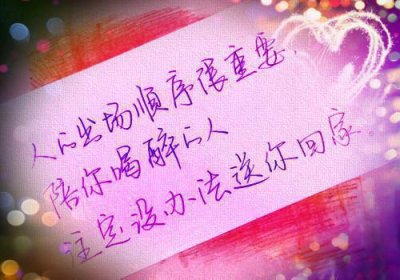 人的出场顺序很重要.
陪你喝醉的人
注定没办法送你回家.